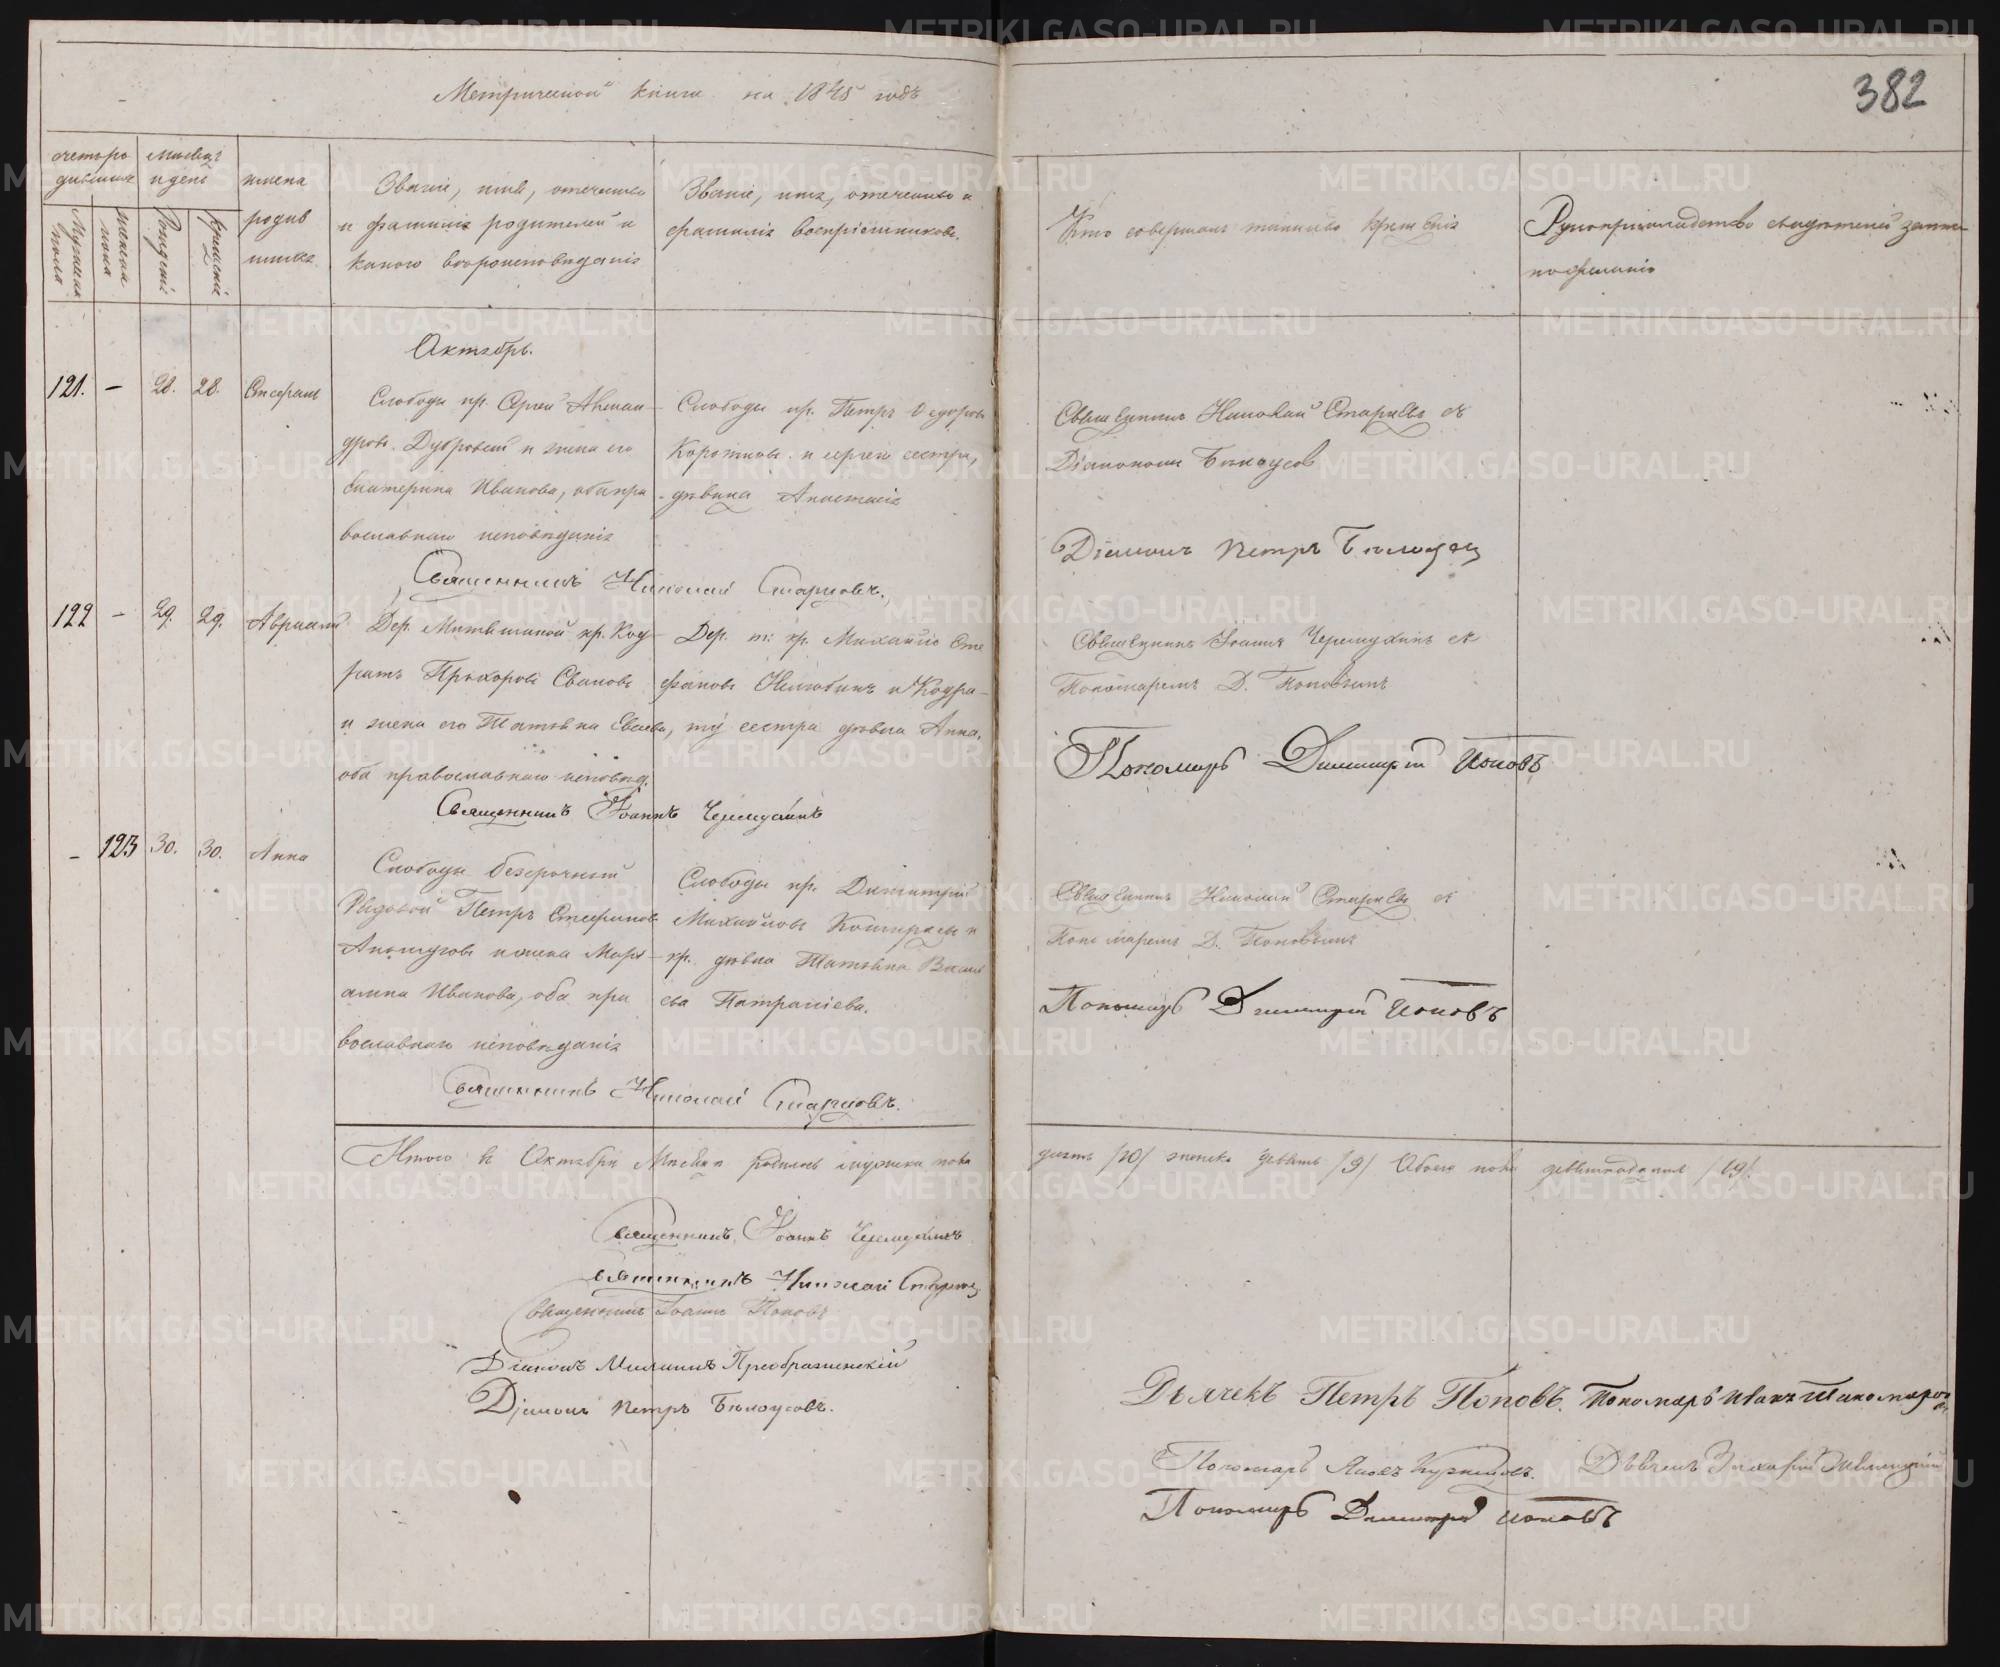 Метрической книги на 1845 годъ
382
счетъ ро
дившихся
мѣсяцъ
и день
имена
родив
шихся
Мужеска
пола
женска
пола
Рожденія
Крещенія
Званіе, имя, отчество
и фамилія родителей и
какого вѣроисповѣданія
Званіе, имя, отчество и
фамилія воспріемниковъ.
Кто совершалъ таинство крещенія
Рукоприкладство свидѣтелей записи
по желанію
Октябрь.
121. — 28. 28. Стефанъ
Слободы кр. Сергей Александровъ
Дубровскій и жена его
Екатерина Иванова, оба пра
вославнаго исповѣданія
Слободы кр. Петръ Ѳедоровъ
Коротковъ и Сергея сестра,
дѣвица Анастасія
Священникъ Николай Старцевъ съ
Діакономъ Бѣлоусовымъ
Діаконъ Петръ Бѣлоусовъ
Священникъ Николай Старцовъ.
122 — 29. 29. Аврамій
Дер. кр. Код
ратъ Прохоровъ
и жена его Татьяна
оба православнаго исповѣд.
Дер. т. кр. Михайло Сте
фановъ и Кодра
ту сестра дѣвка Анна.
Священникъ Іоаннъ Черемухинъ съ
Пономаремъ Д. Поповымъ
Пономарь Димитрій Поповъ
Священникъ Іоаннъ Черемухинъ
— 123 30. 30. Анна
Слободы безсрочный
Рядовой Петръ Стефановъ
и жена Марі
амна Иванова, оба пра
вославнаго исповѣданія
Слободы кр. Димитрій
Михайловъ и
кр. дѣвка Татьяна Василь
ева
Священникъ Николай Старцевъ съ
Пономаремъ Д. Поповымъ
Пономарь Димитрій Поповъ
Священникъ Николай Старцовъ.
Итого въ Октябрѣ Мѣсяцѣ родилось мужеска пола
десять /10/ женска девять /9/ Обоего пола девятнадцать /19/.
Священникъ Іоаннъ Черемухинъ
Священникъ Николай Старцовъ
Священникъ Іоаннъ Поповъ
Діаконъ Преображенскій
Діаконъ Петръ Бѣлоусовъ.
Дьячекъ Петръ Поповъ. Пономарь Иванъ
Пономарь Яковъ Дьячекъ Захарій
Пономарь Димитрій Поповъ
METRIKI.GASO-URAL.RU